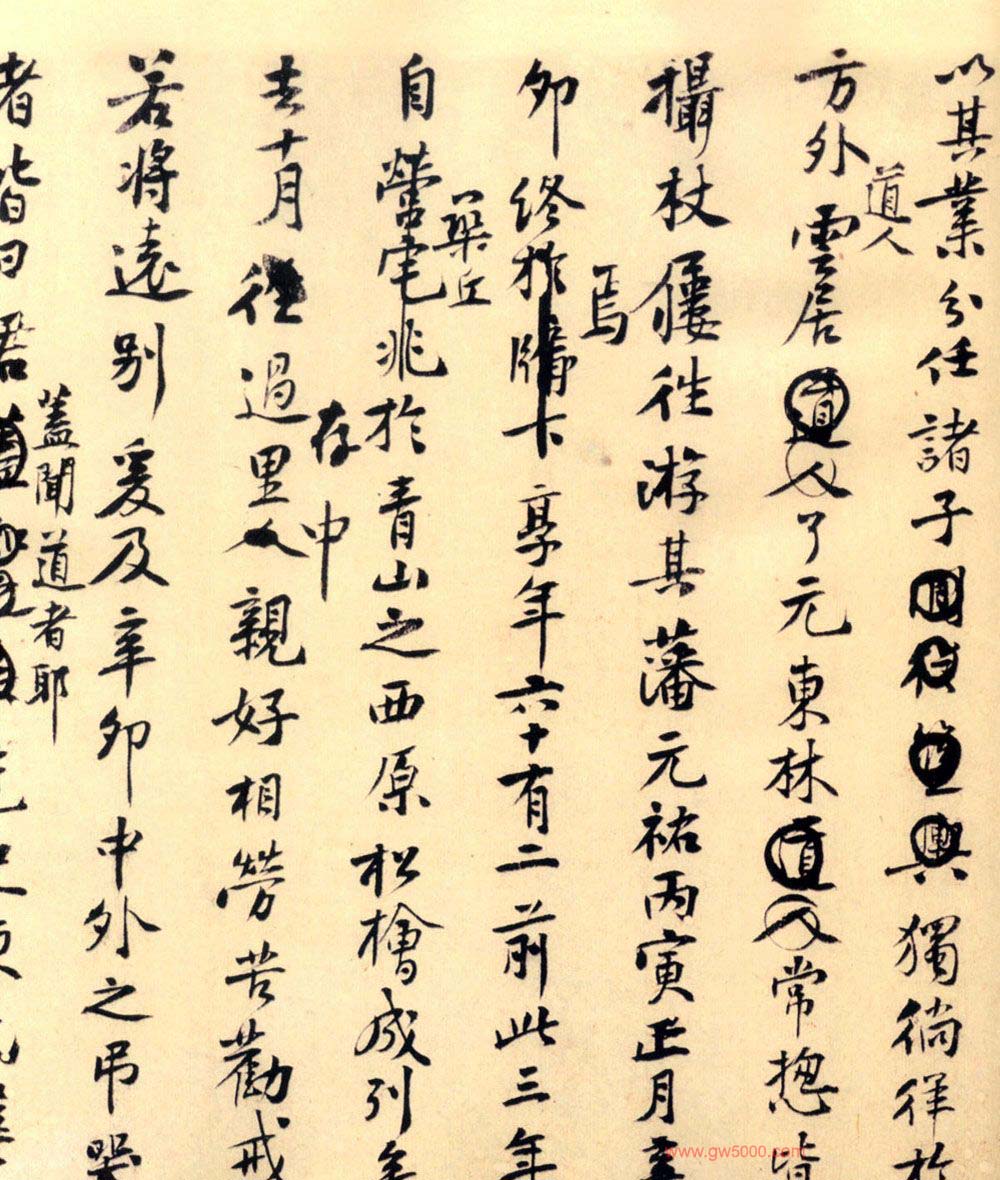 以其業分任諸子與獨徜徉於
道人
方外雲居道人了元東林道人常揔皆
攝杖屨往游其藩元祐丙寅正月
焉
卯終於牖下享年六十有二前此三年
一築丘
自營宅兆於青山之西原松檜成列
存中
去十月往過里人親好相勞苦勸戒
若將遠別爰及辛卯中外之弔哭
蓋聞道者耶
者皆曰君
www.gw5000.com